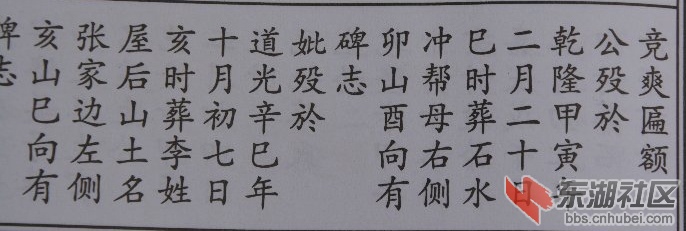 竞爽匾额
公殁於
乾隆甲寅年
二月二十日
巳时葬石水
冲帮母右侧
卯山酉向有
碑志
妣殁於
道光辛巳年
十月初七日
亥时葬李姓
屋后山土名
张家边左侧
亥山巳向有
碑志
东湖社区
bbs.cnhubei.com